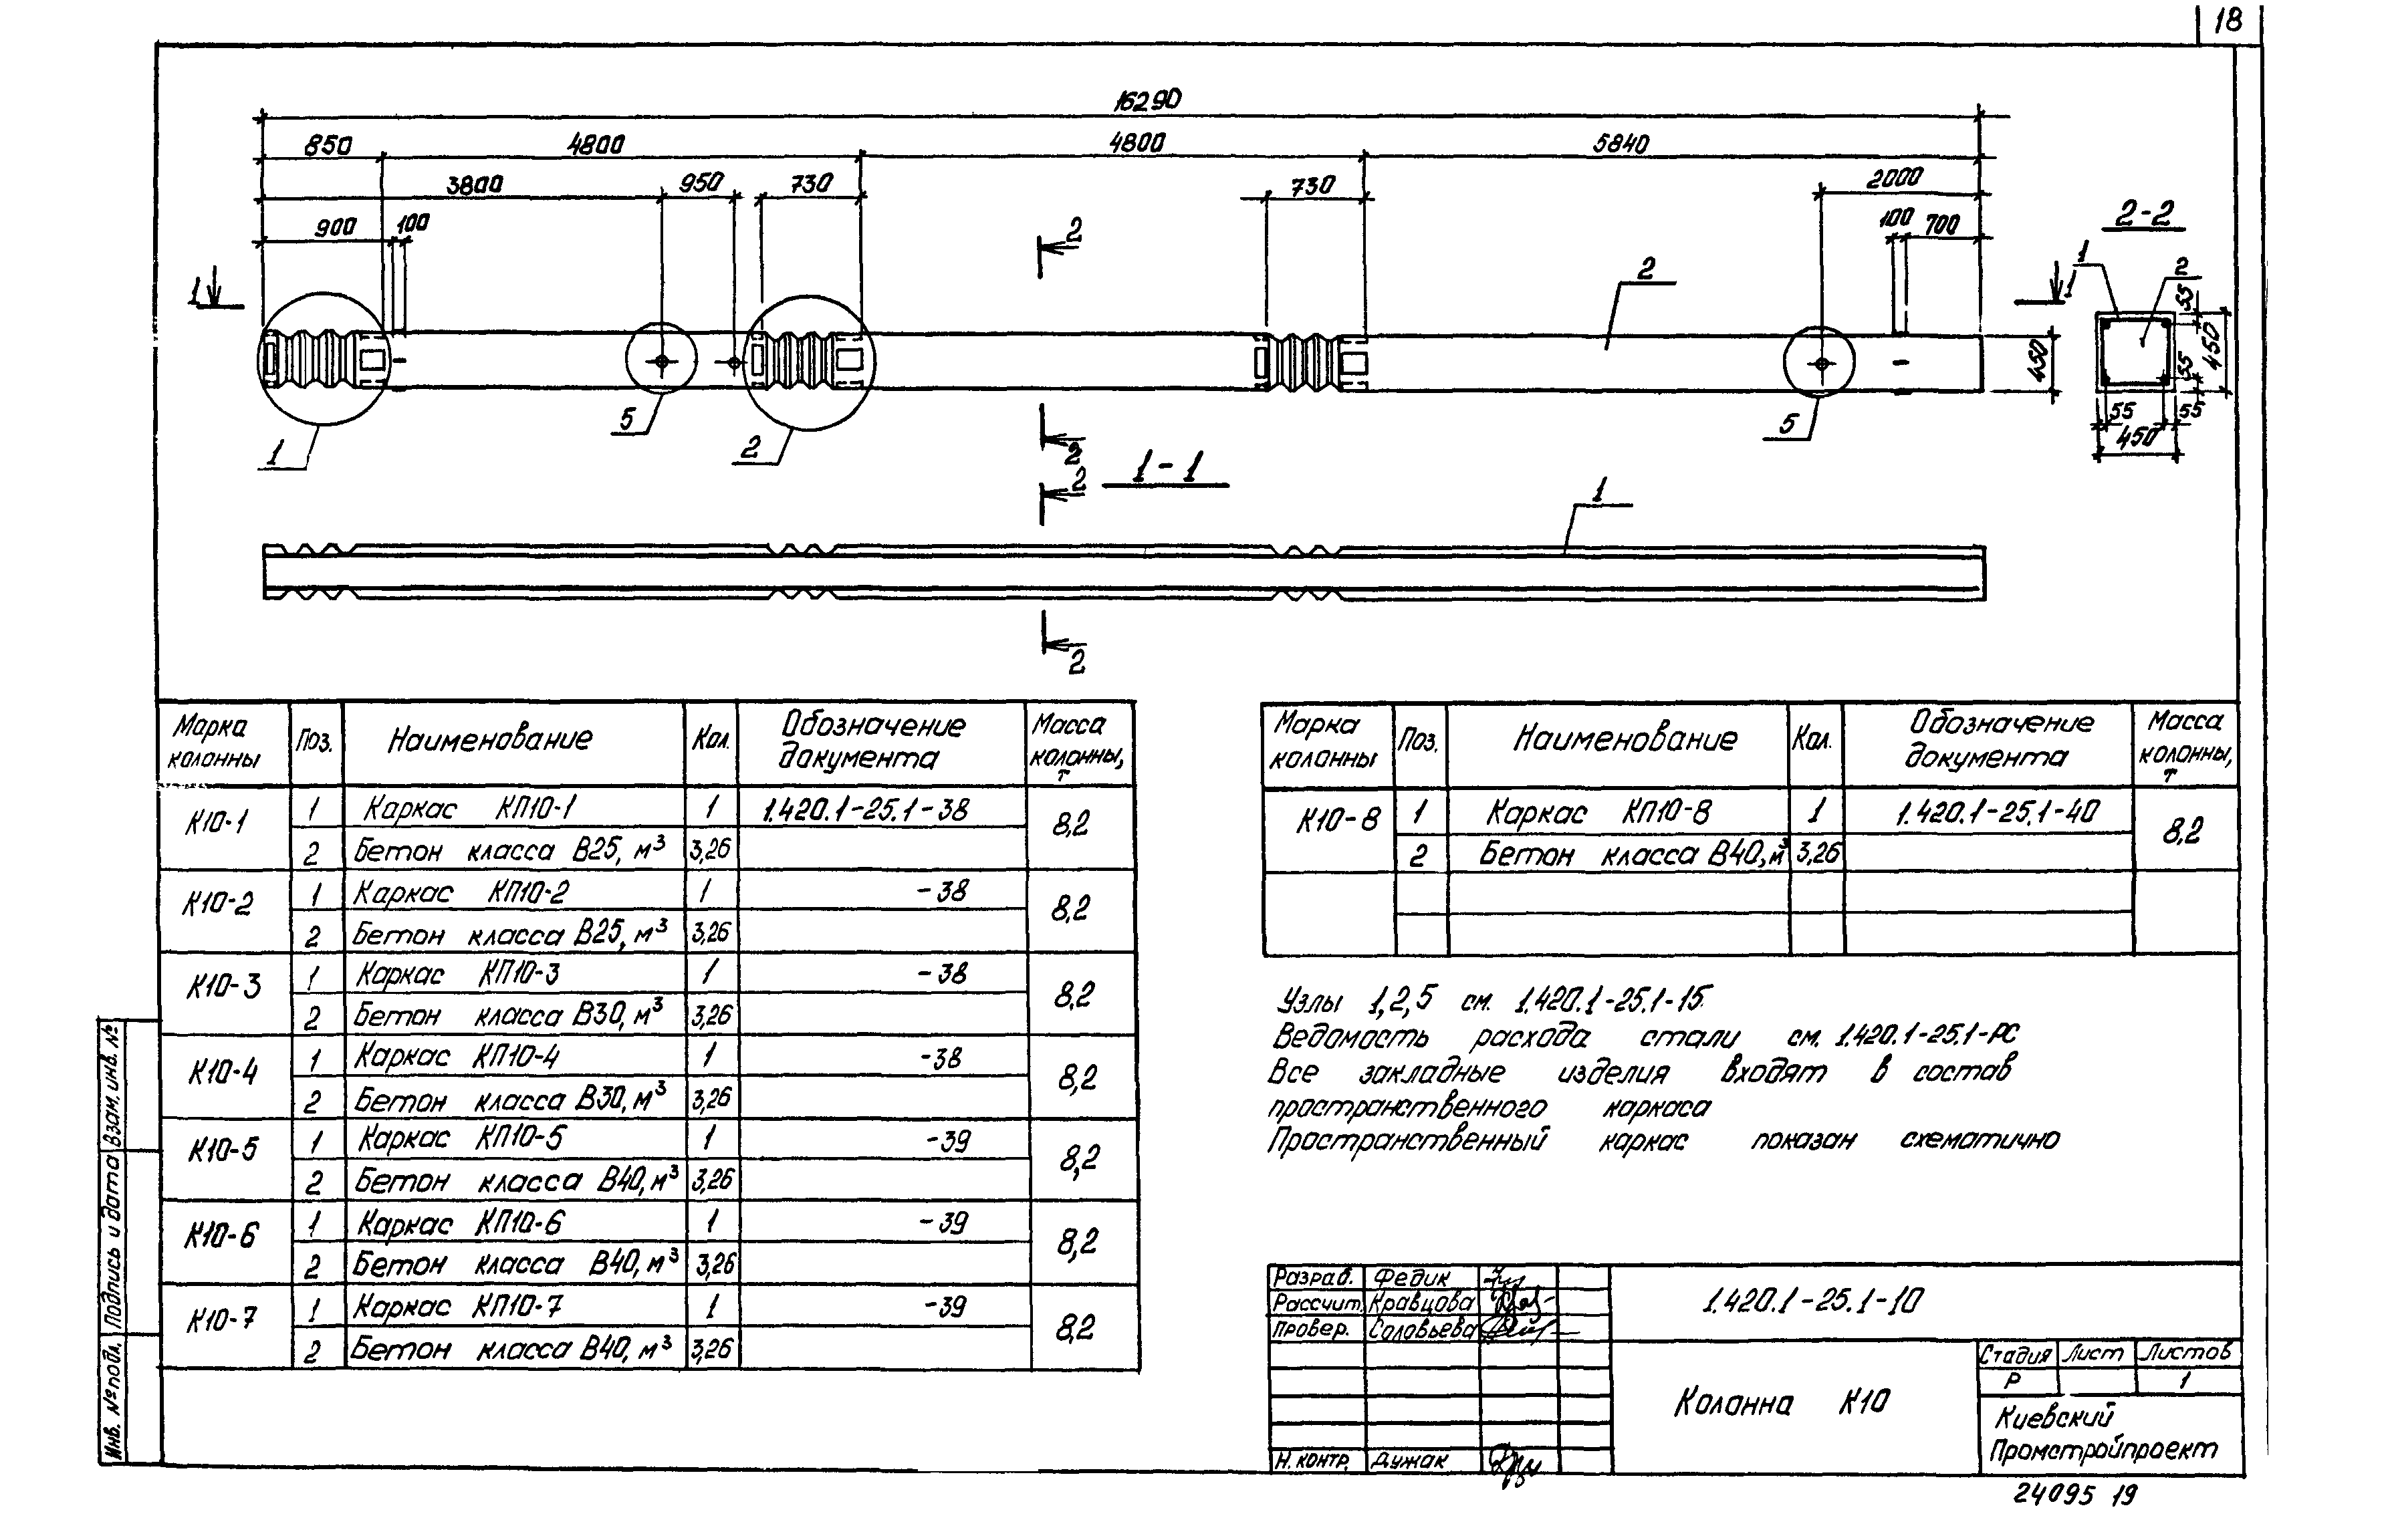 18
16290
850 4800 4800 5840
3800 950 730 730 2000
900 100 100 700
2
1
1
2
2-2
1
2
55
450
55
55 55
450
450
1
5
2
5
2
2
1-1
1
2
Марка колонны Поз. Наименование Кол. Обозначение документа Масса колонны, т
К10-1 1 Каркас КП10-1 1 1.420.1-25.1-38 8,2
2 Бетон класса В25, м³ 3,26
К10-2 1 Каркас КП10-2 1 -38 8,2
2 Бетон класса В25, м³ 3,26
К10-3 1 Каркас КП10-3 1 -38 8,2
2 Бетон класса В30, м³ 3,26
К10-4 1 Каркас КП10-4 1 -38 8,2
2 Бетон класса В30, м³ 3,26
К10-5 1 Каркас КП10-5 1 -39 8,2
2 Бетон класса В40, м³ 3,26
К10-6 1 Каркас КП10-6 1 -39 8,2
2 Бетон класса В40, м³ 3,26
К10-7 1 Каркас КП10-7 1 -39 8,2
2 Бетон класса В40, м³ 3,26
Марка колонны Поз. Наименование Кол. Обозначение документа Масса колонны, т
К10-8 1 Каркас КП10-8 1 1.420.1-25.1-40 8,2
2 Бетон класса В40, м³ 3,26
Узлы 1,2,5 см. 1.420.1-25.1-15.
Ведомость расхода стали см. 1.420.1-25.1-РС
Все закладные изделия входят в состав
пространственного каркаса
Пространственный каркас показан схематично
Разраб. Федик
Рассчит. Кравцова
Провер. Соловьева
Н. контр. Дужак
1.420.1-25.1-10
Колонна К10
Стадия Лист Листов
Р 1
Киевский
Промстройпроект
24095 19
Инв. № подл. Подпись и дата Взам. инв. №